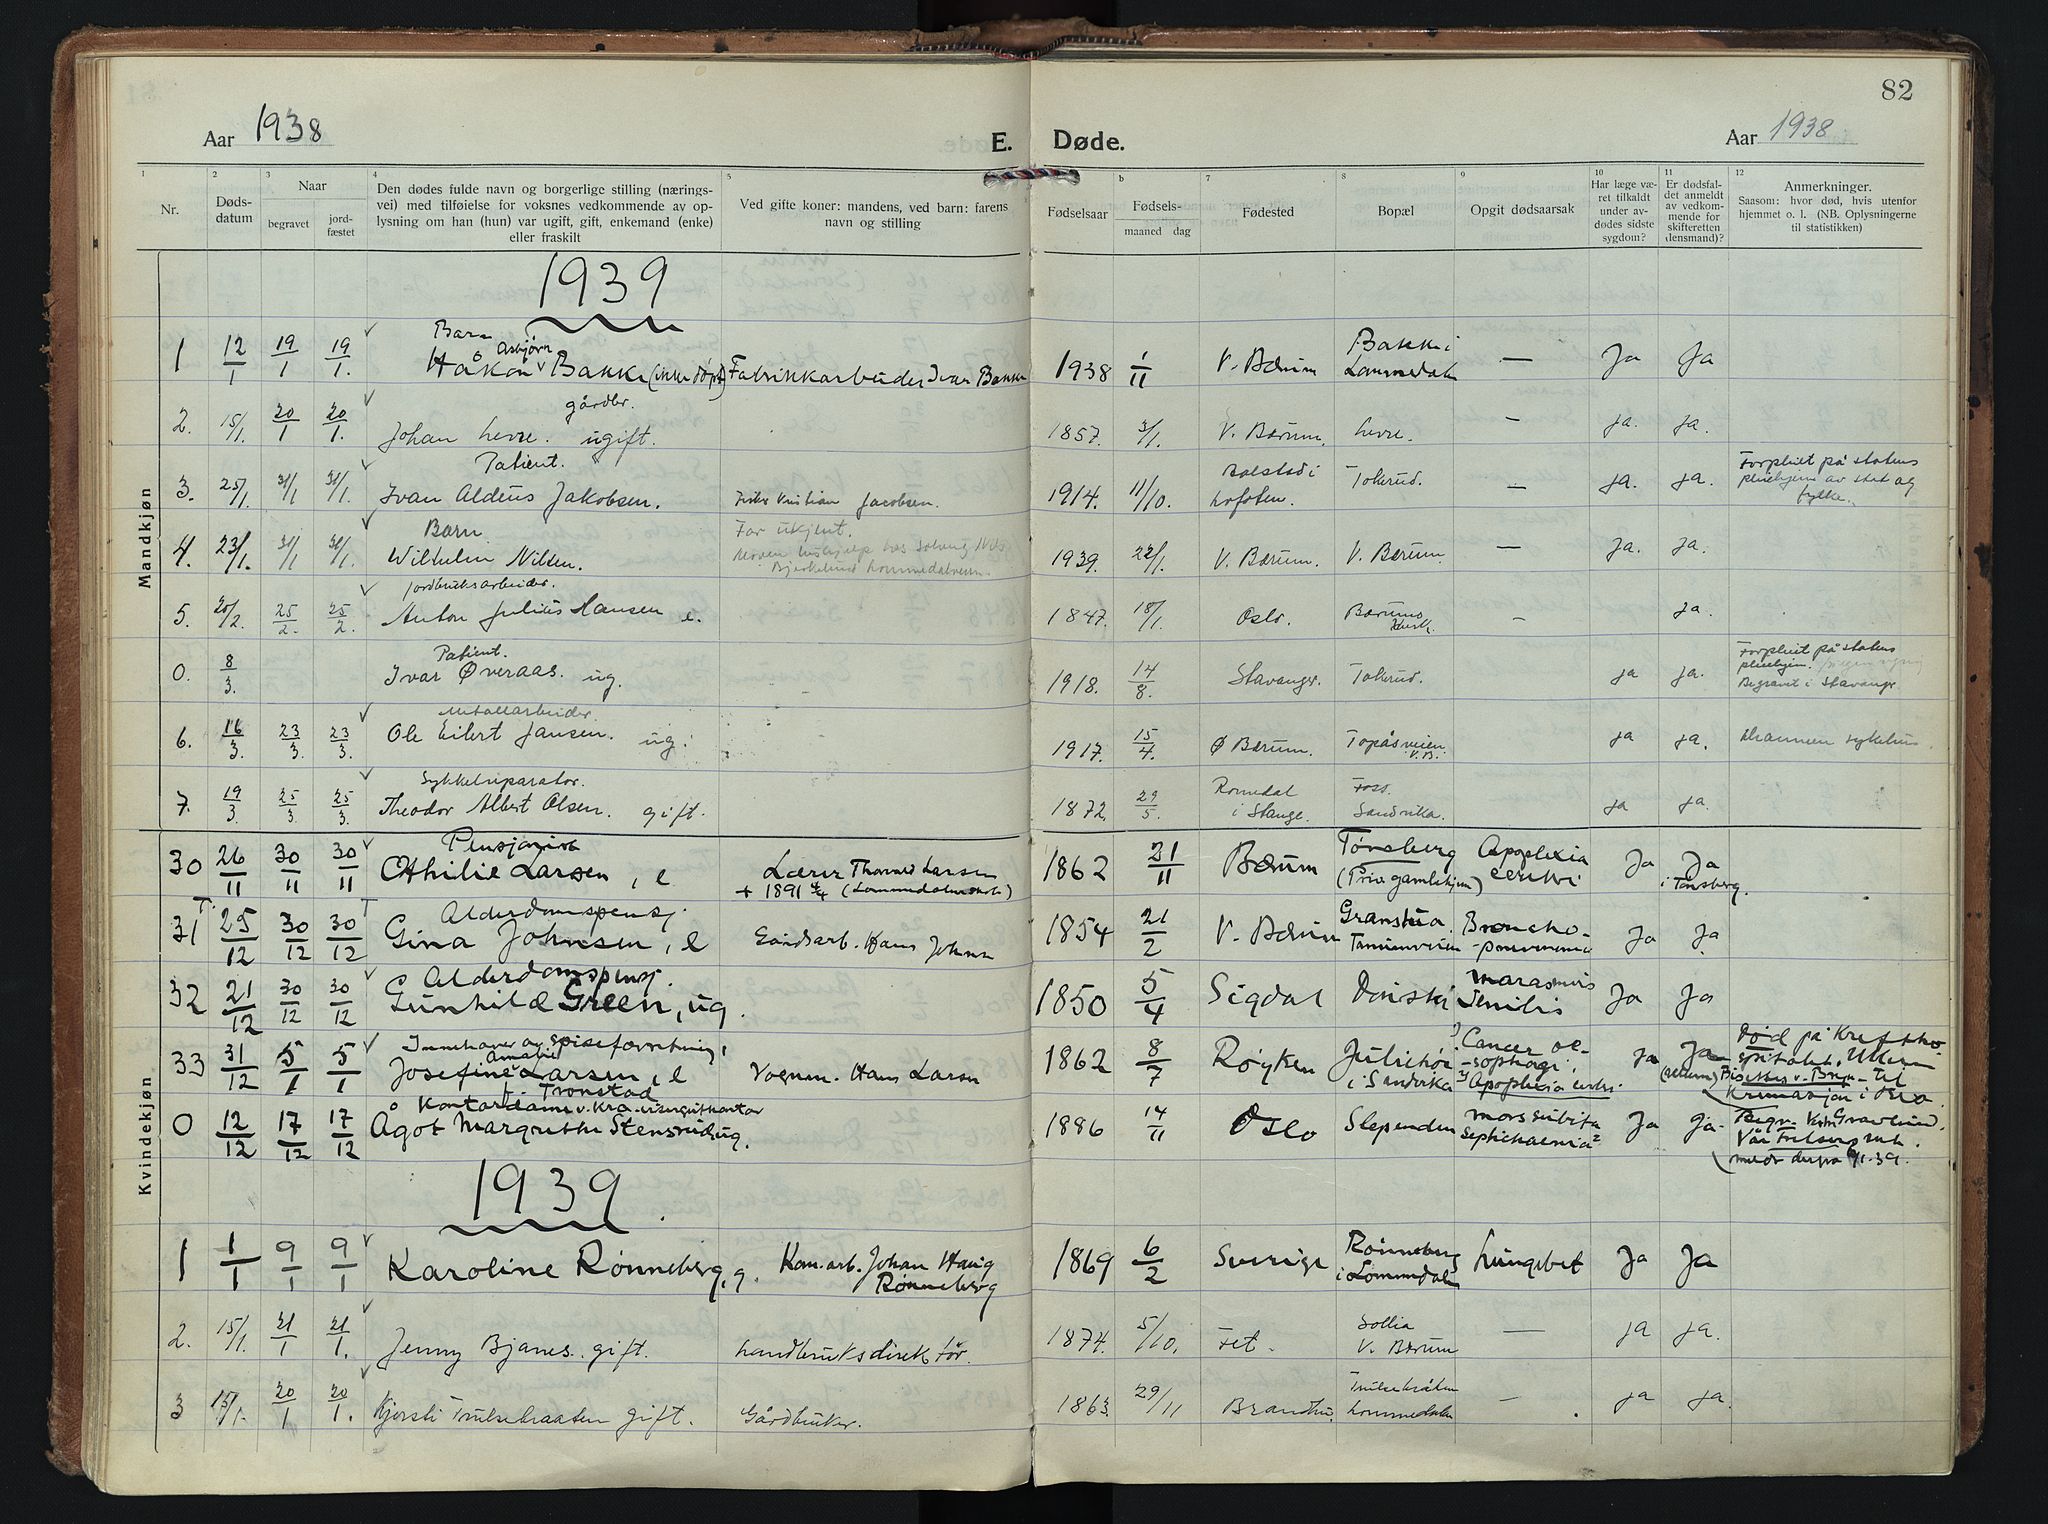 82
Aar 1938
E. Døde.
Aar 1938
1 2 3 4 5 b 7 8 9 10 11 12
Nr.
Dødsdatum
Naar
begravet
jordfæstet
Den dødes fulde navn og borgerlige stilling (næringsvei) med tilføielse for voksnes vedkommende av oplysning om han (hun) var ugift, gift, enkemand (enke) eller fraskilt
Ved gifte koner: mandens, ved barn: farens navn og stilling
Fødselsaar
Fødselsmaaned dag
Fødested
Bopæl
Opgit dødsaarsak
Har læge været tilkaldt under avdødes sidste sygdom?
Er dødsfaldet anmeldt av vedkommende for skifteretten (lensmand)?
Anmerkninger.
Saasom: hvor død, hvis utenfor hjemmet o. l. (NB. Oplysningerne til statistikken)
Mandkjøn
1939
Barn
1 12/1 19/1 19/1. Håkon Asbjørn Bakke (ikke døpt) Fabrikkarbeider Ivar Bakke 1938 1/11 V. Bærum Bakke i Lommedalen — Ja Ja
gårdbr.
2. 15/1. 20/1 20/1. Johan Levre. ugift. 1857. 3/1. V. Bærum. Levre. — ja. ja.
Patient.
3. 25/1. 31/1 31/1. Ivan Aldeus Jakobsen. Kristian Jacobsen. 1914. 11/10. Balstad i Lofoten. Tokerud. — ja. ja. Forpleiet på statens pleiehjem av stat og fylke.
Barn
4. 23/1. 31/1 31/1. Wilhelm Nilsen. Far ukjent. 1939. 22/1. V. Bærum. V. Bærum. — ja. ja.
Jordbruksarbeider.
5. 20/2. 25/2. 25/2. Anton Julius Hansen e. 1847. 18/1. Oslo. Bærums — ja.
Patient.
0. 8/3. Ivar Øveraas. ug. 1918. 14/8. Stavanger. Tokerud. ja ja. Forpleiet på statens pleiehjem. Begravet i Stavanger
Metallarbeider.
6. 16/3. 23/3. 23/3. Ole Eilert Jansen. ug. 1917. 15/4. Ø Bærum. Topåsveien V.B. ja ja. sykehus.
Sykkelreparatør.
7. 19/3. 25/3. 25/3. Theodor Albert Olsen. gift. 1872. 29/5. Romedal i Stange. Foss. Sandvika. ja ja.
Kvindekjøn
Pensjonist
30 26/11 30/11 30/11 Othilie Larsen, e Lærer Thomas Larsen + 1891 4/4 (Lommedalen skole) 1862 21/11 Bærum Tønsberg (Priv. gamlehjem) Apoplexia cerebri Ja Ja i Tønsberg.
Alderdomspensj.
31 25/12 30/12 30/12 Gina Johnsen, e Gårdsarb. Hans Johnsen 1854 21/2 V. Bærum Granstua. Tanumveien Broncho-pneumonia Ja Ja.
Alderdomspensj.
32 21/12 30/12 30/12 Gunhild Green, ug. 1850 5/4 Sigdal Marasmus Senilis Ja Ja
Innehaver av spiseforretning,
33 31/12 5/1 5/1 Josefine Amalie Larsen, e f. Tronstad Vognm. Hans Larsen 1862 8/7 Røyken i Sandvika 1) Cancer oesophagi, 2) Apoplexia cerebri. Ja Ja (Ullern) Død på Krefthospitalet. Ullern til Kremasjon i Oslo.
Kontordame v. Kra
0 12/12 17/12 17/12 Ågot Margrethe Stensrud, ug. 1886 14/11 Oslo Slependen Mors subita septichaemia? Ja Ja. Begr. Vår Frelsers menigh. (meldt derfra 6/1.39.
1939
1 1/1 9/1 9/1 Karoline Rønneberg, g. Kom.arb. Johan Haug Rønneberg 1869 6/2 Sverige Rønneberg i Lommedalen Lungebet Ja Ja
2. 15/1. 21/1 21/1. Jenny Bjanes. gift. Landbruksdirektør. 1874. 5/10. Fet. Sollia V. Bærum — ja ja.
3 15/1. 20/1 20/1. Kjersti Trulserhaaten gift. Gårdbruker. 1863. 29/11 Brandbu. Lommedalen — ja ja.